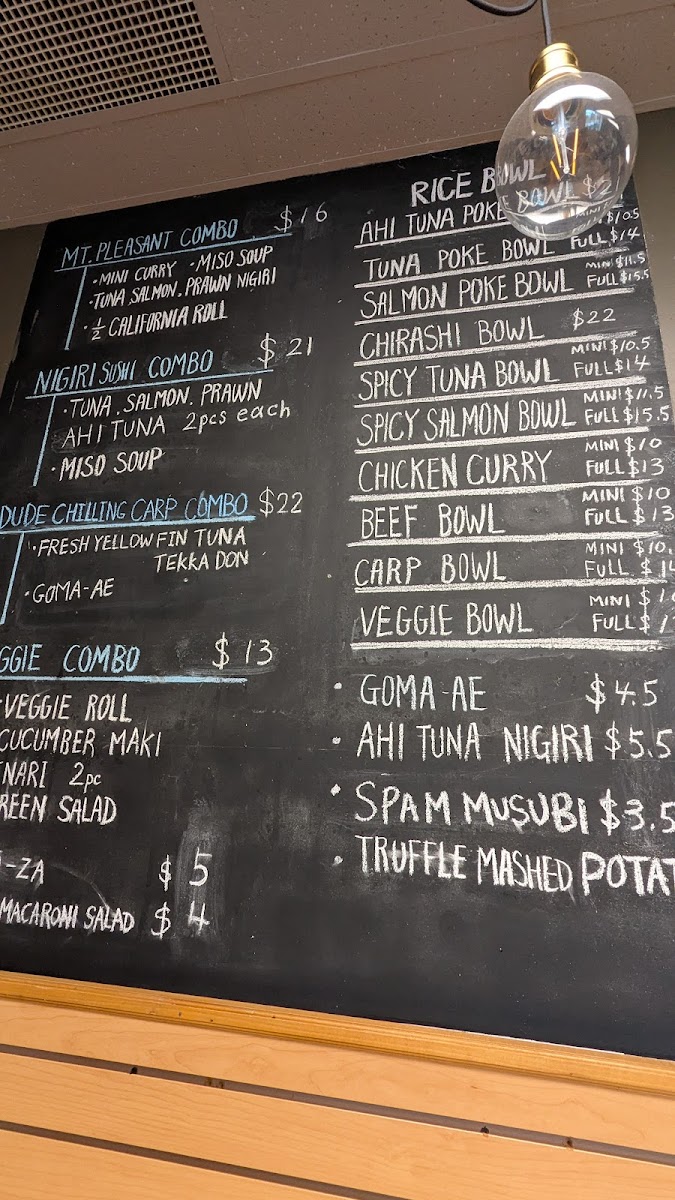 MT. PLEASANT COMBO $16
· MINI CURRY · MISO SOUP
· TUNA, SALMON, PRAWN NIGIRI
· ½ CALIFORNIA ROLL
NIGIRI SUSHI COMBO $21
· TUNA, SALMON, PRAWN
AHI TUNA 2pcs each
· MISO SOUP
DUDE CHILLING CARP COMBO $22
· FRESH YELLOW FIN TUNA
TEKKA DON
· GOMA-AE
GGIE COMBO $13
VEGGIE ROLL
CUCUMBER MAKI
NARI 2pc
REEN SALAD
-ZA $5
MACARONI SALAD $4
RICE BOWL
AHI TUNA POKE BOWL
TUNA POKE BOWL MINI $10.5 FULL $14
SALMON POKE BOWL MINI $11.5 FULL $15.5
CHIRASHI BOWL $22
SPICY TUNA BOWL MINI $10.5 FULL $14
SPICY SALMON BOWL MINI $11.5 FULL $15.5
CHICKEN CURRY MINI $10 FULL $13
BEEF BOWL MINI $10 FULL $13
CARP BOWL MINI $10. FULL $14
VEGGIE BOWL MINI FULL
· GOMA-AE $4.5
· AHI TUNA NIGIRI $5.5
· SPAM MUSUBI $3.5
· TRUFFLE MASHED POTAT